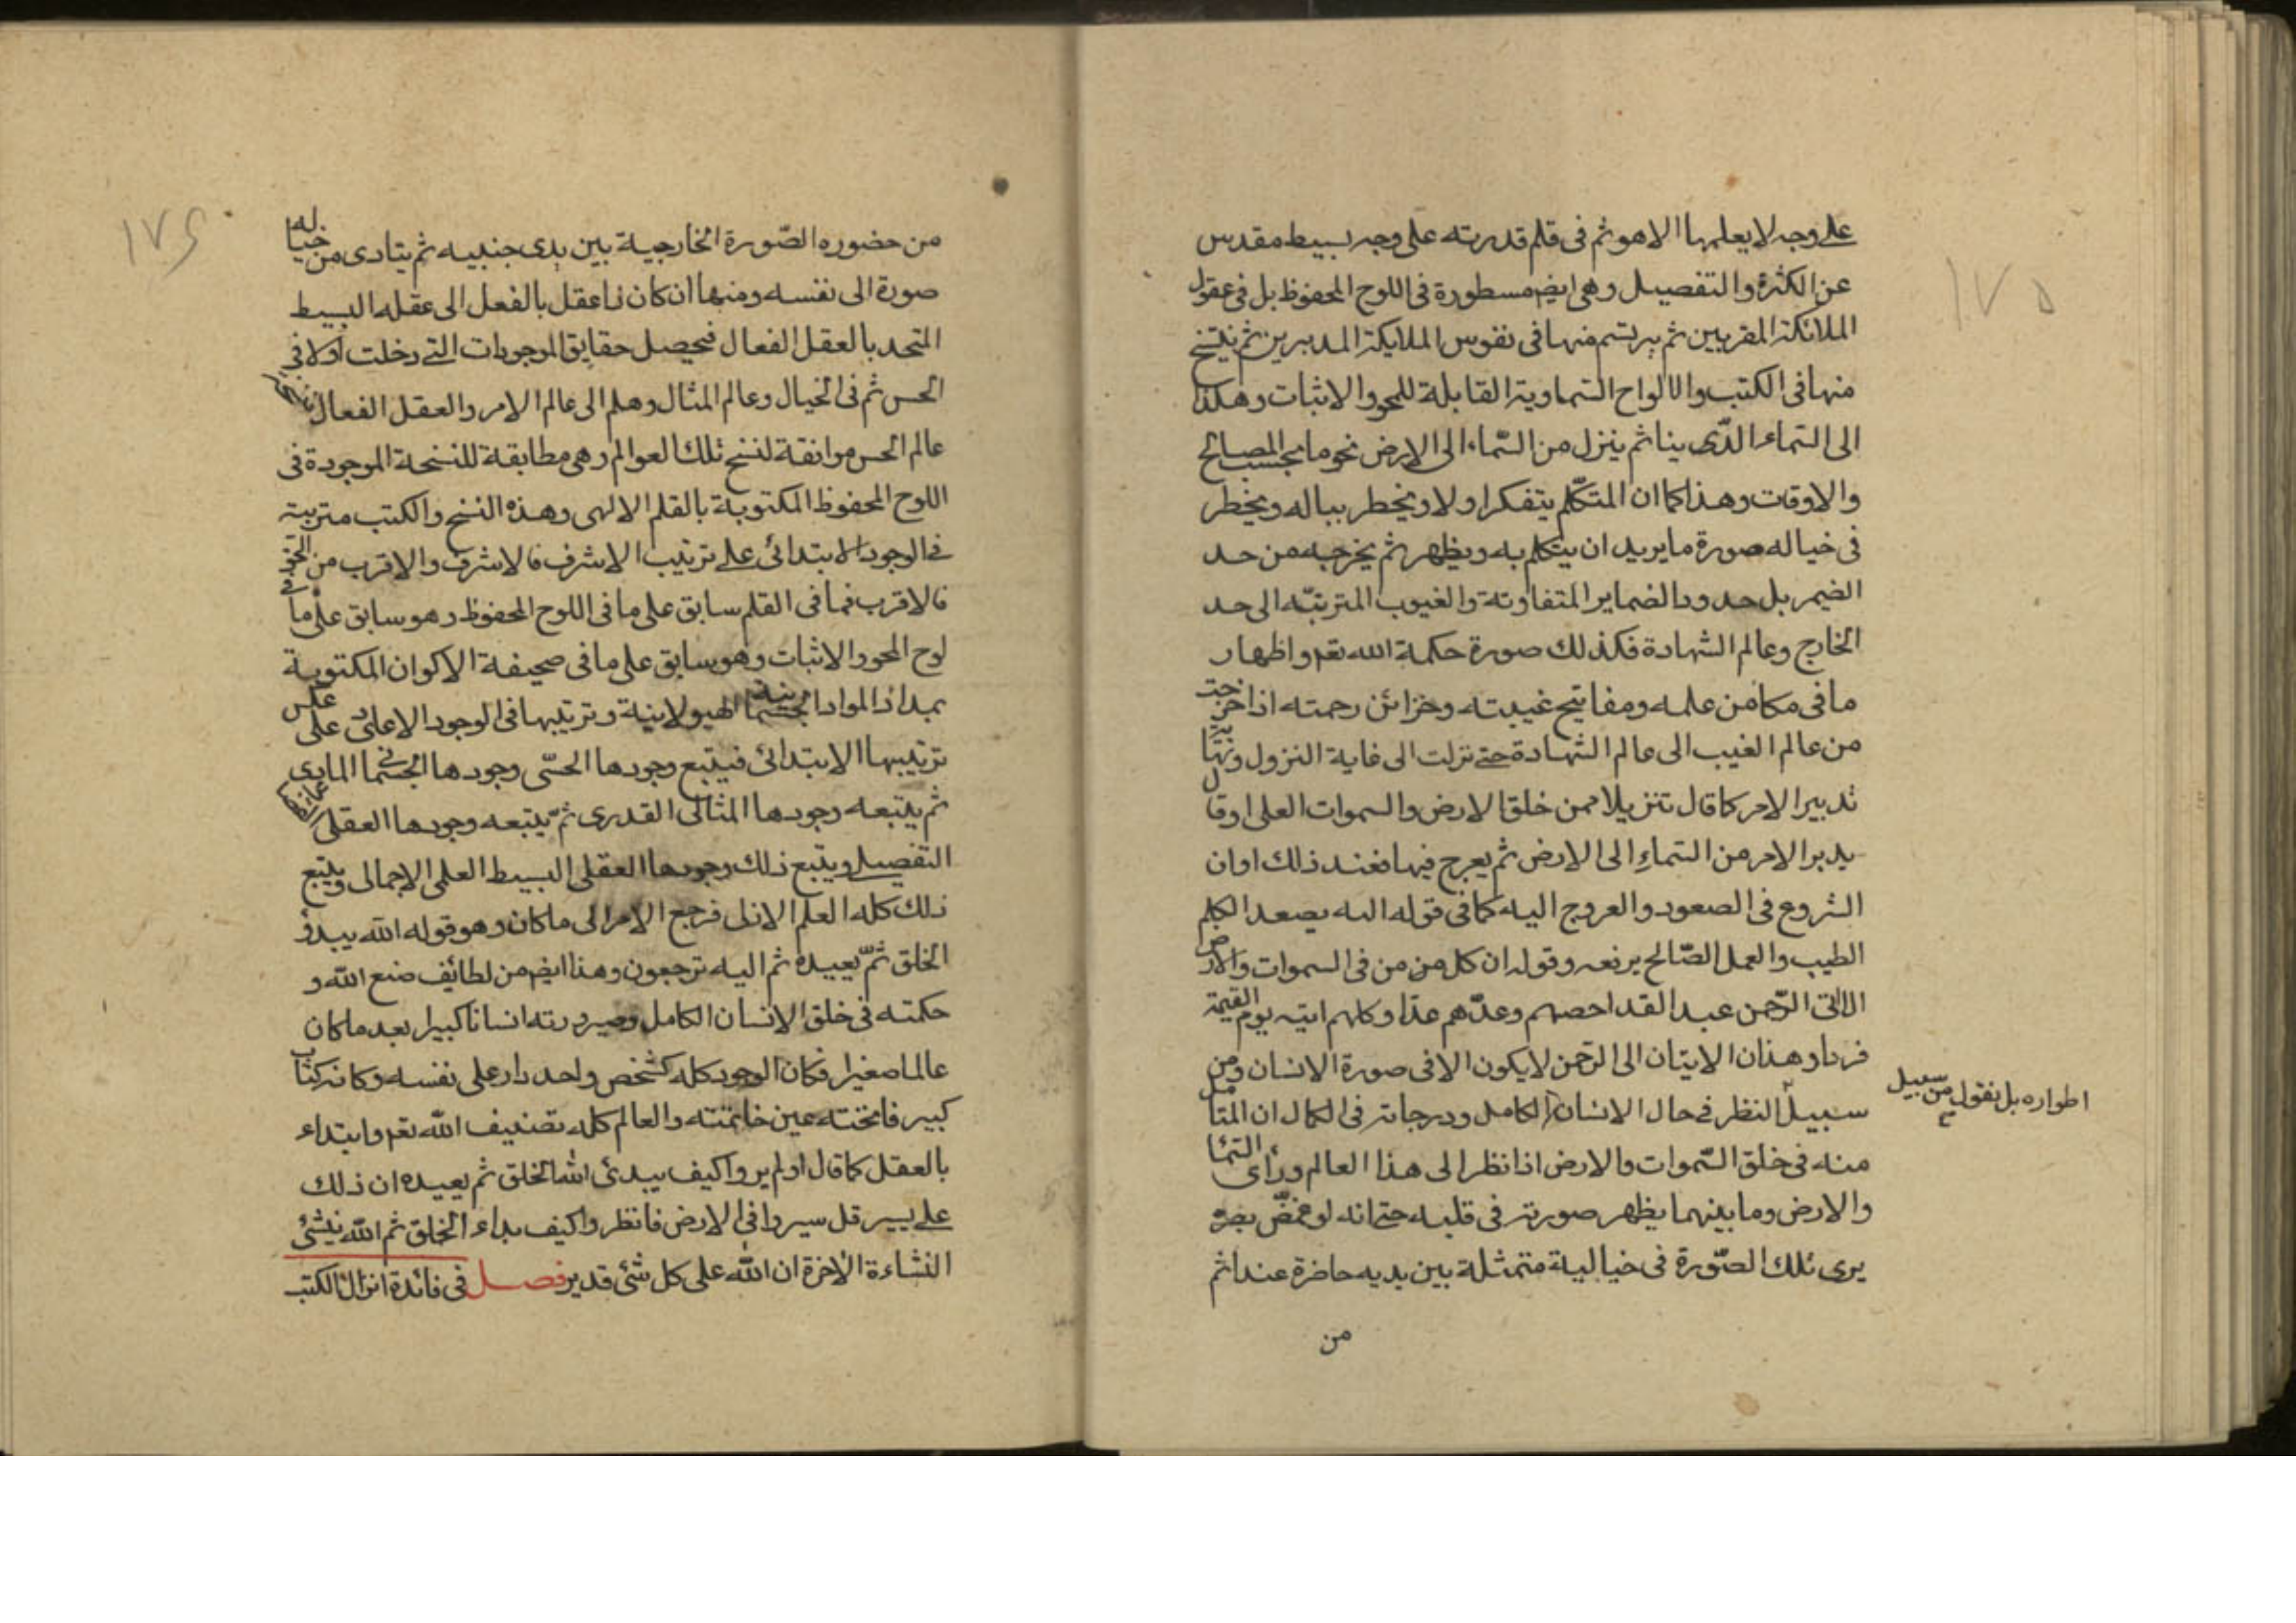 ١٧٥
على وجه لا يعلمها الا هو ثم في قلم قدرته على وجه بسيط مقدس
عن الكثرة والتفصيل وهي ايضم مسطورة في اللوح المحفوظ بل في عقول
الملائكة المقربين ثم يرتسم منها في نفوس الملايكة المدبرين ثم ينتسخ
منها في الكتب والالواح السماوية القابلة للمحو والاثبات وهكذا
الى السماء الدى ينا ثم ينزل من السماء الى الارض نجوما بحسب المصالح
والاوقات وهذا كما ان المتكلم يتفكر اولا ويخطر بباله ويخطر
في خياله صورة ما يريد ان يتكلم به ويظهر ثم يخرجه من حد
الضمير بل حدود الضماير المتفاوتة والغيوب المترتبة الى حد
الخارج وعالم الشهادة فكذلك صورة حكمة الله تعم واظهار
ما في مكامن علمه ومفاتيح غيبته وخزائن رحمته اذا خرجت
من عالم الغيب الى عالم الشهادة حتى نزلت الى غاية النزول ونهاية
تدبير الامر كما قال تنزيلا ممن خلق الارض والسموات العلى او قال
يدبر الامر من السماء الى الارض ثم يعرج فيها فعند ذلك اوان
الشروع في الصعود والعروج اليه كما في قوله اليه يصعد الكلم
الطيب والعمل الصالح يرفعه وقوله ان كل من من في السموات والارض
الا اتى الرحمن عبدا لقد احصهم وعدهم عدا وكلهم اتيه يوم القيمة
فردا وهذان الاتيان الى الرحمن لا يكون الا في صورة الانسان ومن
سبيل النظر في حال الانسان الكامل ودرجاته في الكمال ان المتامل
اطواره بل نقول من سبيل
منه في خلق السموات والارض اذا نظر الى هذا العالم ورأى السما
والارض وما بينهما يظهر صورته في قلبه حتى انه لو غمض بصره
يرى تلك الصورة في خيالية متمثلة بين يديه حاضرة عنده اثم
من
١٧٦
من حضوره الصورة الخارجية بين يدى جنبيه ثم يتادى من خياله
صورة الى نفسه ومنها ان كان ذا عقل بالفعل الى عقله البسيط
المتحد بالعقل الفعال فيحصل حقايق الموجودات التي دخلت اولا في
الحس ثم في الخيال وعالم المثال وهلم الى عالم الامر والعقل الفعال
عالم الحس موافقة لنسخ تلك العوالم وهى مطابقة للنسخة الموجودة في
اللوح المحفوظ المكتوبة بالقلم الالهى وهذه النسخ والكتب مترتبة
في الوجود الابتدائى على ترتيب الاشرف فالاشرف والاقرب من الحق
فالاقرب فما في القلم سابق على ما في اللوح المحفوظ وهو سابق على ما في
لوح المحو والاثبات وهو سابق على ما في صحيفة الاكوان المكتوبة
بمداد المواد الجسمانية الهيولانية وترتيبها في الوجود الاعادى على عكس
ترتيبها الابتدائى فيتبع وجودها الحسى وجودها الجسمانى المادى
ثم يتبعه وجودها المثالى القدرى ثم يتبعه وجودها العقلى
التفصيلى ويتبع ذلك وجودها العقلى البسيط العلمى الاجمالى ويتبع
ذلك كله العلم الازلى فرجع الامر الى ما كان وهو قوله الله يبدؤ
الخلق ثم يعيده ثم اليه ترجعون وهذا ايضم من لطائف صنع الله و
حكمته في خلق الانسان الكامل وصيرورته انسانا كبيرا بعد ما كان
عالما صغيرا فكان الوجود كله كشخص واحد دار على نفسه وكانه كتاب
كبير فاتحته عين خاتمته والعالم كله تصنيف الله تعم وابتداء
بالعقل كما قال اولم يروا كيف يبدئ الله الخلق ثم يعيده ان ذلك
على يسير قل سيروا في الارض فانظروا كيف بداء الخلق ثم الله ينشئ
النشاءة الاخرة ان الله على كل شئ قدير فصل في فائدة انزال الكتب